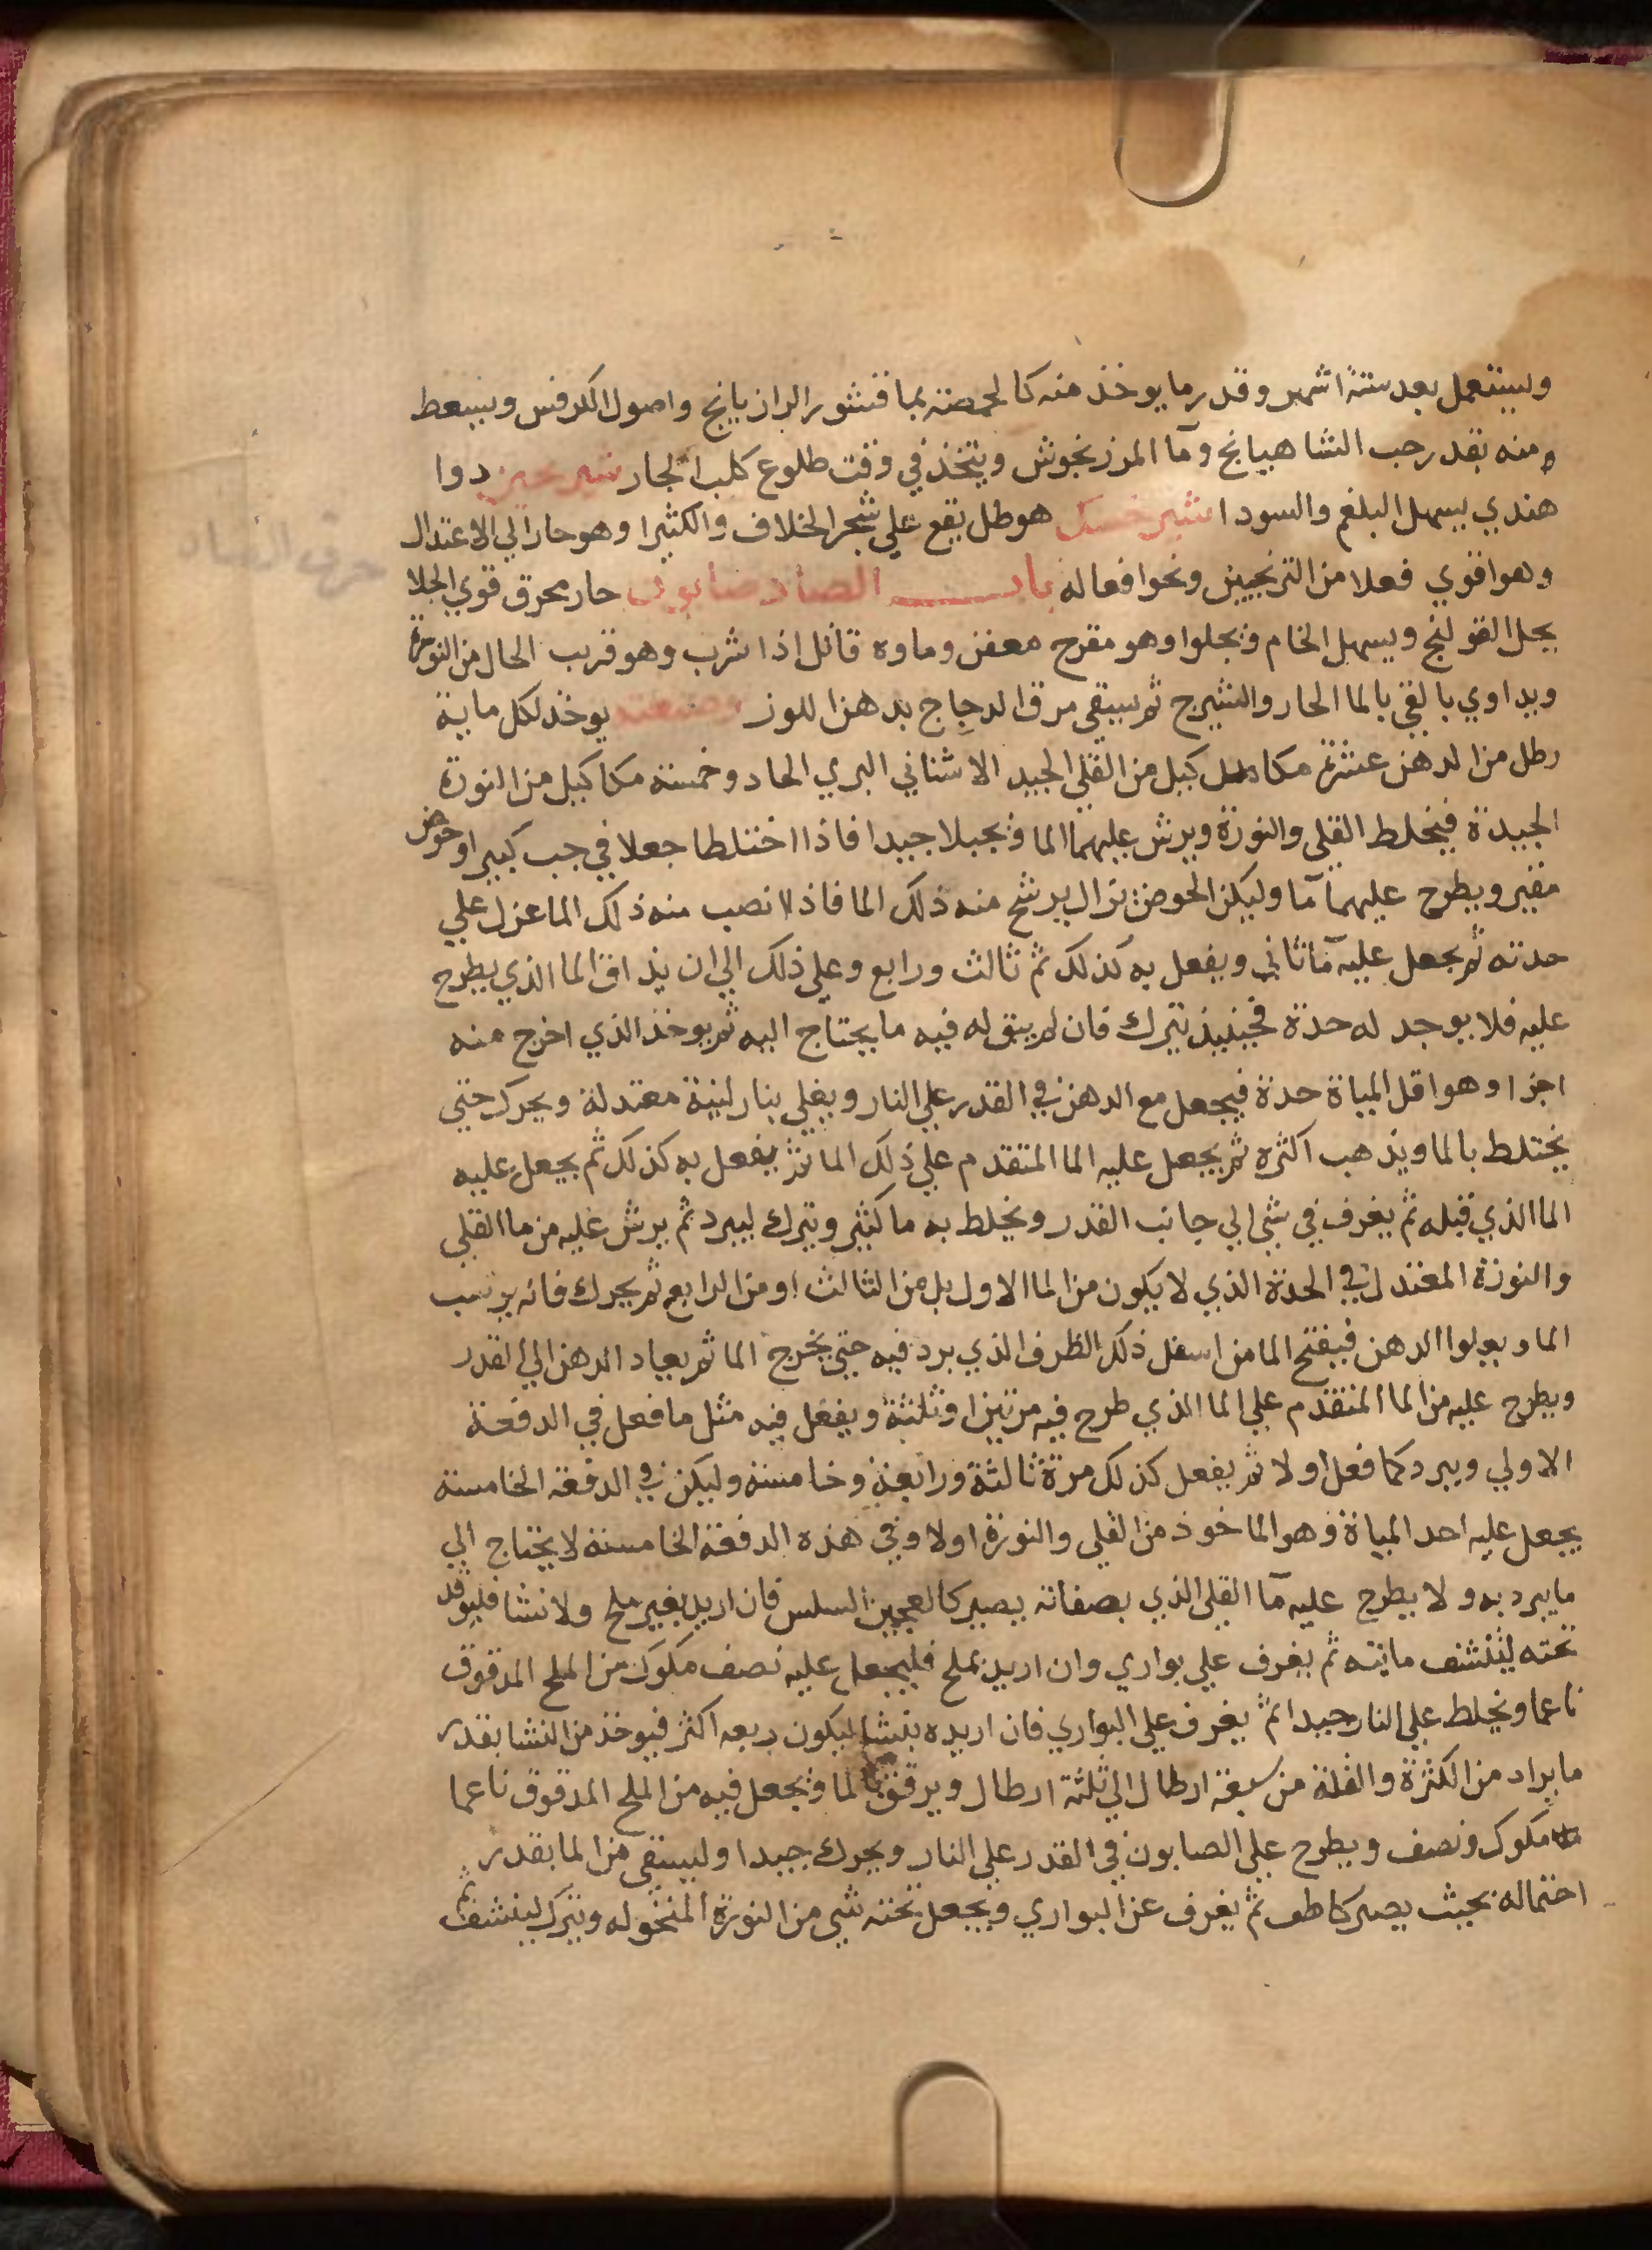 ويستعمل بعد ستة اشهر وقدر ما يوخذ منه كالحمصة بما قشور الرازيانج واصول الكرفس ويسعط
منه بقدر حب الشاهيانج وما المرزنجوش ويتخذ في وقت طلوع كلب الجبار شير دوا
هندي يسهل البلغم والسودا شير خشك هو طل يقع علي شجر الخلاف والكثيرا وهو حار الي الاعتدال
حرف الصاد
وهو اقوي فعلا من الترنجبين ونحو افعاله باب الصاد صابون حار محرق قوي الجلا
يحل القولنج ويسهل الخام ويجلوا وهو مقرح معفن وماوه قاتل اذا شرب وهو قريب الحال من النورة
ويداوي بالقي بالما الحار والشيرج ثم يسقي مرق الدجاج بدهن اللوز وصنعته يوخذ لكل ماية
رطل من الدهن عشرة مكا كيل من القلي الجيد الاشناني البري الحاد وخمسة مكاكيل من النورة
الجيدة فيخلط القلي والنورة ويرش عليهما الما ويجبلا جيدا فاذا اختلطا جعلا في جب كبير او حوض
مقير ويطرح عليهما ما وليكن الحوض نزال يرشح منه ذلك الما فاذا نصب منه ذلك الما عزل علي
حدته ثم يجعل عليه ما ثاني ويفعل به كذلك ثم ثالث ورابع وعلي ذلك الي ان يذاق الما الذي يطرح
عليه فلا يوجد له حدة فحينيذ يترك فان لم يبق له فيه ما يحتاج اليه ثم يوخذ الذي اخرج منه
اجزا وهو اقل المياة حدة فيجعل مع الدهن في القدر علي النار ويغلي بنار لينة معتدلة ويحرك حتي
يختلط بالما ويذهب اكثره ثم يجعل عليه الما المتقدم علي ذلك الما ثم يفعل به كذلك ثم يجعل عليه
الما الذي قبله ثم يغرف في شي الي جانب القدر ويخلط به ما كثير ويترك ليبرد ثم يرش عليه من ما القلي
والنورة المعتدل في الحدة الذي لا يكون من الما الاول بل من الثالث او من الرابع ثم يحرك فانه يرسب
الما ويعلوا الدهن فيفتح الما من اسفل ذلك الظرف الذي برد فيه حتي يخرج الما ثم يعاد الدهن الي القدر
ويطرح عليه من الما المتقدم علي الما الذي طرح فيه مرتين او ثلثة ويفعل فيه مثل ما فعل في الدفعة
الاولي ويبرد كما فعل اولا ثم يفعل كذلك مرة ثالثة ورابعة وخامسة وليكن في الدفعة الخامسة
يجعل عليه احد المياة وهو الماخوذ من القلي والنورة اولا وفي هذه الدفعة الخامسة لا يحتاج الي
ما يبرد به ولا يطرح عليه ما القلي الذي بصفاته يصير كالعجين السلس فان اريد بغير ملح ولا نشا فليوقد
تحته لينشف مايته ثم يغرف علي بواري وان اريد بملح فليجعل عليه نصف مكوك من الملح المدقوق
ناعما ويخلط علي النار جيدا ثم يغرف علي البواري فان اريده بنشا ليكون ريعه اكثر فيوخذ من النشا بقدر
ما يراد من الكثرة والقلة من سبعة ارطال الي ثلثة ارطال ويرقق بالما ويجعل فيه من الملح المدقوق ناعما
مكوك ونصف ويطرح علي الصابون في القدر علي النار ويحرك جيدا وليسقي من الما بقدر
احتماله بحيث يصير ثم يغرف عن البواري ويجعل تحته شي من النورة المنخوله ويترك لينشف ثم